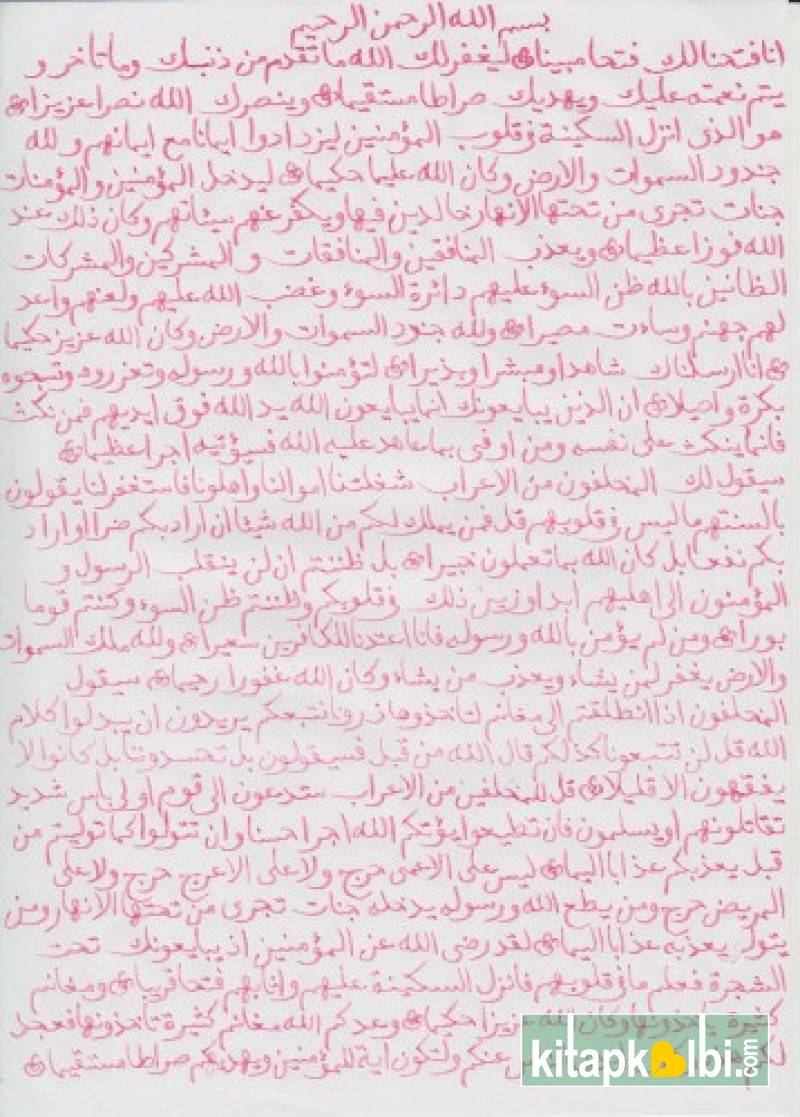 بسم الله الرحمن الرحيم
انا فتحنا لك فتحا مبينا ليغفر لك الله ما تقدم من ذنبك وما تاخر و
يتم نعمته عليك ويهديك صراطا مستقيما وينصرك الله نصرا عزيزا
هو الذى انزل السكينة فى قلوب المؤمنين ليزدادوا ايمانا مع ايمانهم ولله
جنود السموات والارض وكان الله عليما حكيما ليدخل المؤمنين والمؤمنات
جنات تجرى من تحتها الانهار خالدين فيها ويكفر عنهم سيئاتهم وكان ذلك عند
الله فوزا عظيما ويعذب المنافقين والمنافقات والمشركين والمشركات
الظانين بالله ظن السوء عليهم دائرة السوء وغضب الله عليهم ولعنهم واعد
لهم جهنم وساءت مصيرا ولله جنود السموات والارض وكان الله عزيز حكيما
انا ارسلناك شاهدا ومبشرا ونذيرا لتؤمنوا بالله ورسوله وتعزروه وتسبحوه
بكرة واصيلا ان الذين يبايعونك انما يبايعون الله يد الله فوق ايديهم فمن نكث
فانما ينكث على نفسه ومن اوفى بما عاهد عليه الله فسيؤتيه اجرا عظيما
سيقول لك المخلفون من الاعراب شغلتنا اموالنا واهلونا فاستغفر لنا يقولون
بالسنتهم ما ليس فى قلوبهم قل فمن يملك لكم من الله شيئا ان اراد بكم ضرا او اراد
بكم نفعا بل كان الله بما تعملون خبيرا بل ظننتم ان لن ينقلب الرسول و
المؤمنون الى اهليهم ابدا وزين ذلك فى قلوبكم وظننتم ظن السوء وكنتم قوما
بورا ومن لم يؤمن بالله ورسوله فانا اعتدنا للكافرين سعيرا ولله ملك السموات
والارض يغفر لمن يشاء ويعذب من يشاء وكان الله غفورا رحيما سيقول
المخلفون اذا انطلقتم الى مغانم لتاخذوها ذرونا نتبعكم يريدون ان يبدلوا كلام
الله قل لن تتبعونا كذلكم قال الله من قبل فسيقولون بل تحسدوننا بل كانوا لا
يفقهون الا قليلا قل للمخلفين من الاعراب ستدعون الى قوم اولى باس شديد
تقاتلونهم او يسلمون فان تطيعوا يؤتكم الله اجرا حسنا وان تتولوا كما توليتم من
قبل يعذبكم عذابا اليما ليس على الاعمى حرج ولا على الاعرج حرج ولا على
المريض حرج ومن يطع الله ورسوله يدخله جنات تجرى من تحتها الانهار ومن
يتول يعذبه عذابا اليما لقد رضى الله عن المؤمنين اذ يبايعونك تحت
الشجرة فعلم ما فى قلوبهم فانزل السكينة عليهم واثابهم فتحا قريبا ومغانم
كثيرة ياخذونها وكان الله عزيزا حكيما وعدكم الله مغانم كثيرة تاخذونها فعجل
لكم عنكم ولتكون اية للمؤمنين ويهديكم صراطا مستقيما
kitapkalbi.com